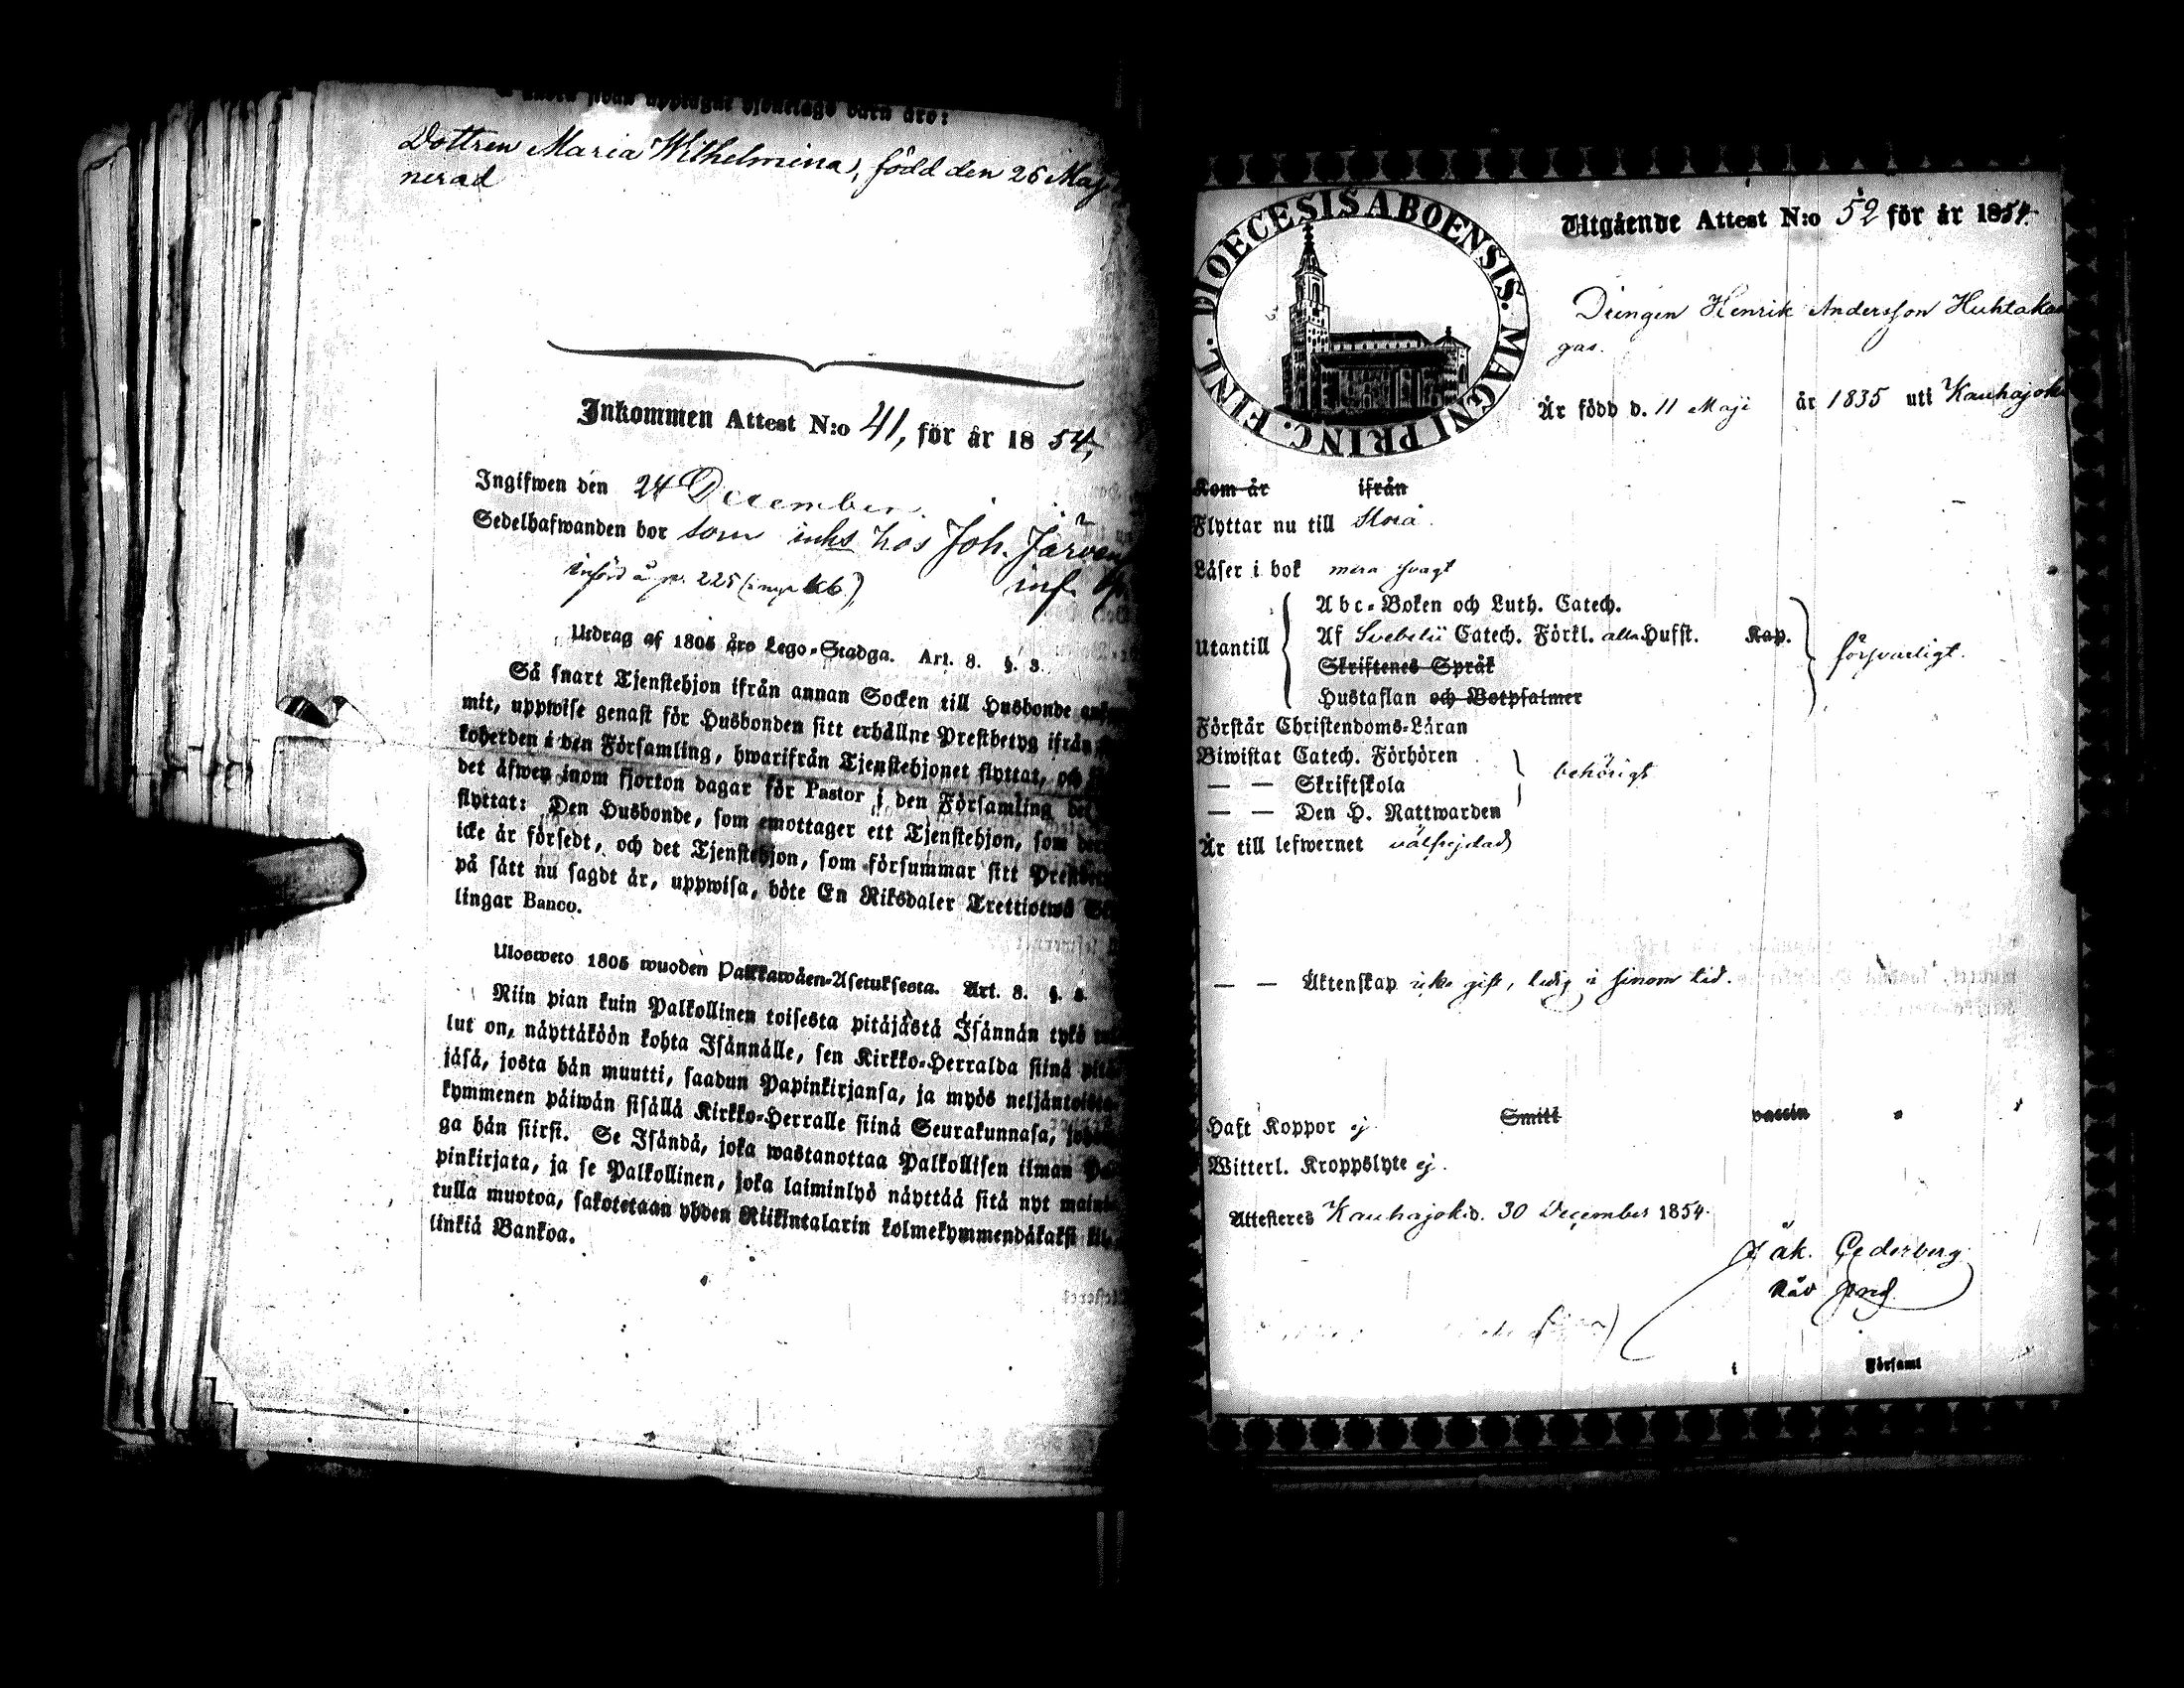 å andra sidan upptagne Hjonelags barn äro:
Dottren Maria Wilhelmina, född den 26 Maj
nerad
Inkommen Attest N:o 41, för år 1854,
Ingifwen den 24 December.
Sedelhafwanden bor som inhs hos Joh. Järven
införd å p. 225 (i nya kb.) inf.
Utdrag af 1805 års Lego-Stadga. Art. 8. §. 3.
Så snart Tjenstehjon ifrån annan Socken till Husbonde
mit, uppwise genast för Husbonden sitt erhållne Prestbetyg ifrån
koherden i den Församling, hwarifrån Tjenstehjonet flyttat, och
det äfwen inom fjorton dagar för Pastor i den Församling
flyttat: Den Husbonde, som emottager ett Tjenstehjon, som
icke är försedt, och det Tjenstehjon, som försummar sitt
på sätt nu sagdt är, uppwisa, böte En Riksdaler Trettiotwå
lingar Banco.
Ulosweto 1805 wuoden Palkkawäen-Asetuksesta. Art. 8. §.
Niin pian kuin Palkollinen toisesta pitäjästä Isännän tykö
lut on, näyttäköön kohta Isännälle, sen Kirkko-Herralda siinä
jäsä, josta hän muutti, saadun Papinkirjansa, ja myös neljäntoista
kymmenen päiwän sisällä Kirkko-Herralle siinä Seurakunnasa,
ga hän siirsi. Se Isändä, joka wastanottaa Palkollisen ilman
pinkirjata, ja se Palkollinen, joka laiminlyö näyttää sitä nyt
tulla muotoa, sakotetaan yhden Riikintalarin kolmekymmendäkaksi
linkiä Bankoa.
DIOECESIS ABOENSIS. MAGNI PRINC. FINL.
Utgående Attest N:o 52 för år 1854.
Drengen Henrik Andersson Huhtakan
gas.
Är född d. 11 Maji år 1835 uti Kauhajoki
Kom år ifrån
Flyttar nu till Storå.
Läser i bok mera svagt
Abc-Boken och Luth. Catech.
Utantill Af Svebelii Catech. Förkl. alla Hufst. Kap. försvarligt.
Skriftenes Språk
Hustaflan och Botpsalmer
Förstår Christendoms-Läran
Biwistat Catech. Förhören
— — Skriftskola behörigt
— — Den H. Nattwarden
Är till lefwernet välfrejdad
— — Äktenskap icke gift, ledig i sinom tid.
Haft Koppor ej Smitt vaccin
Witterl. Kroppslyte ej.
Attesteres Kauhajoki d. 30 December 1854.
Jak. Cederberg.
i Församl